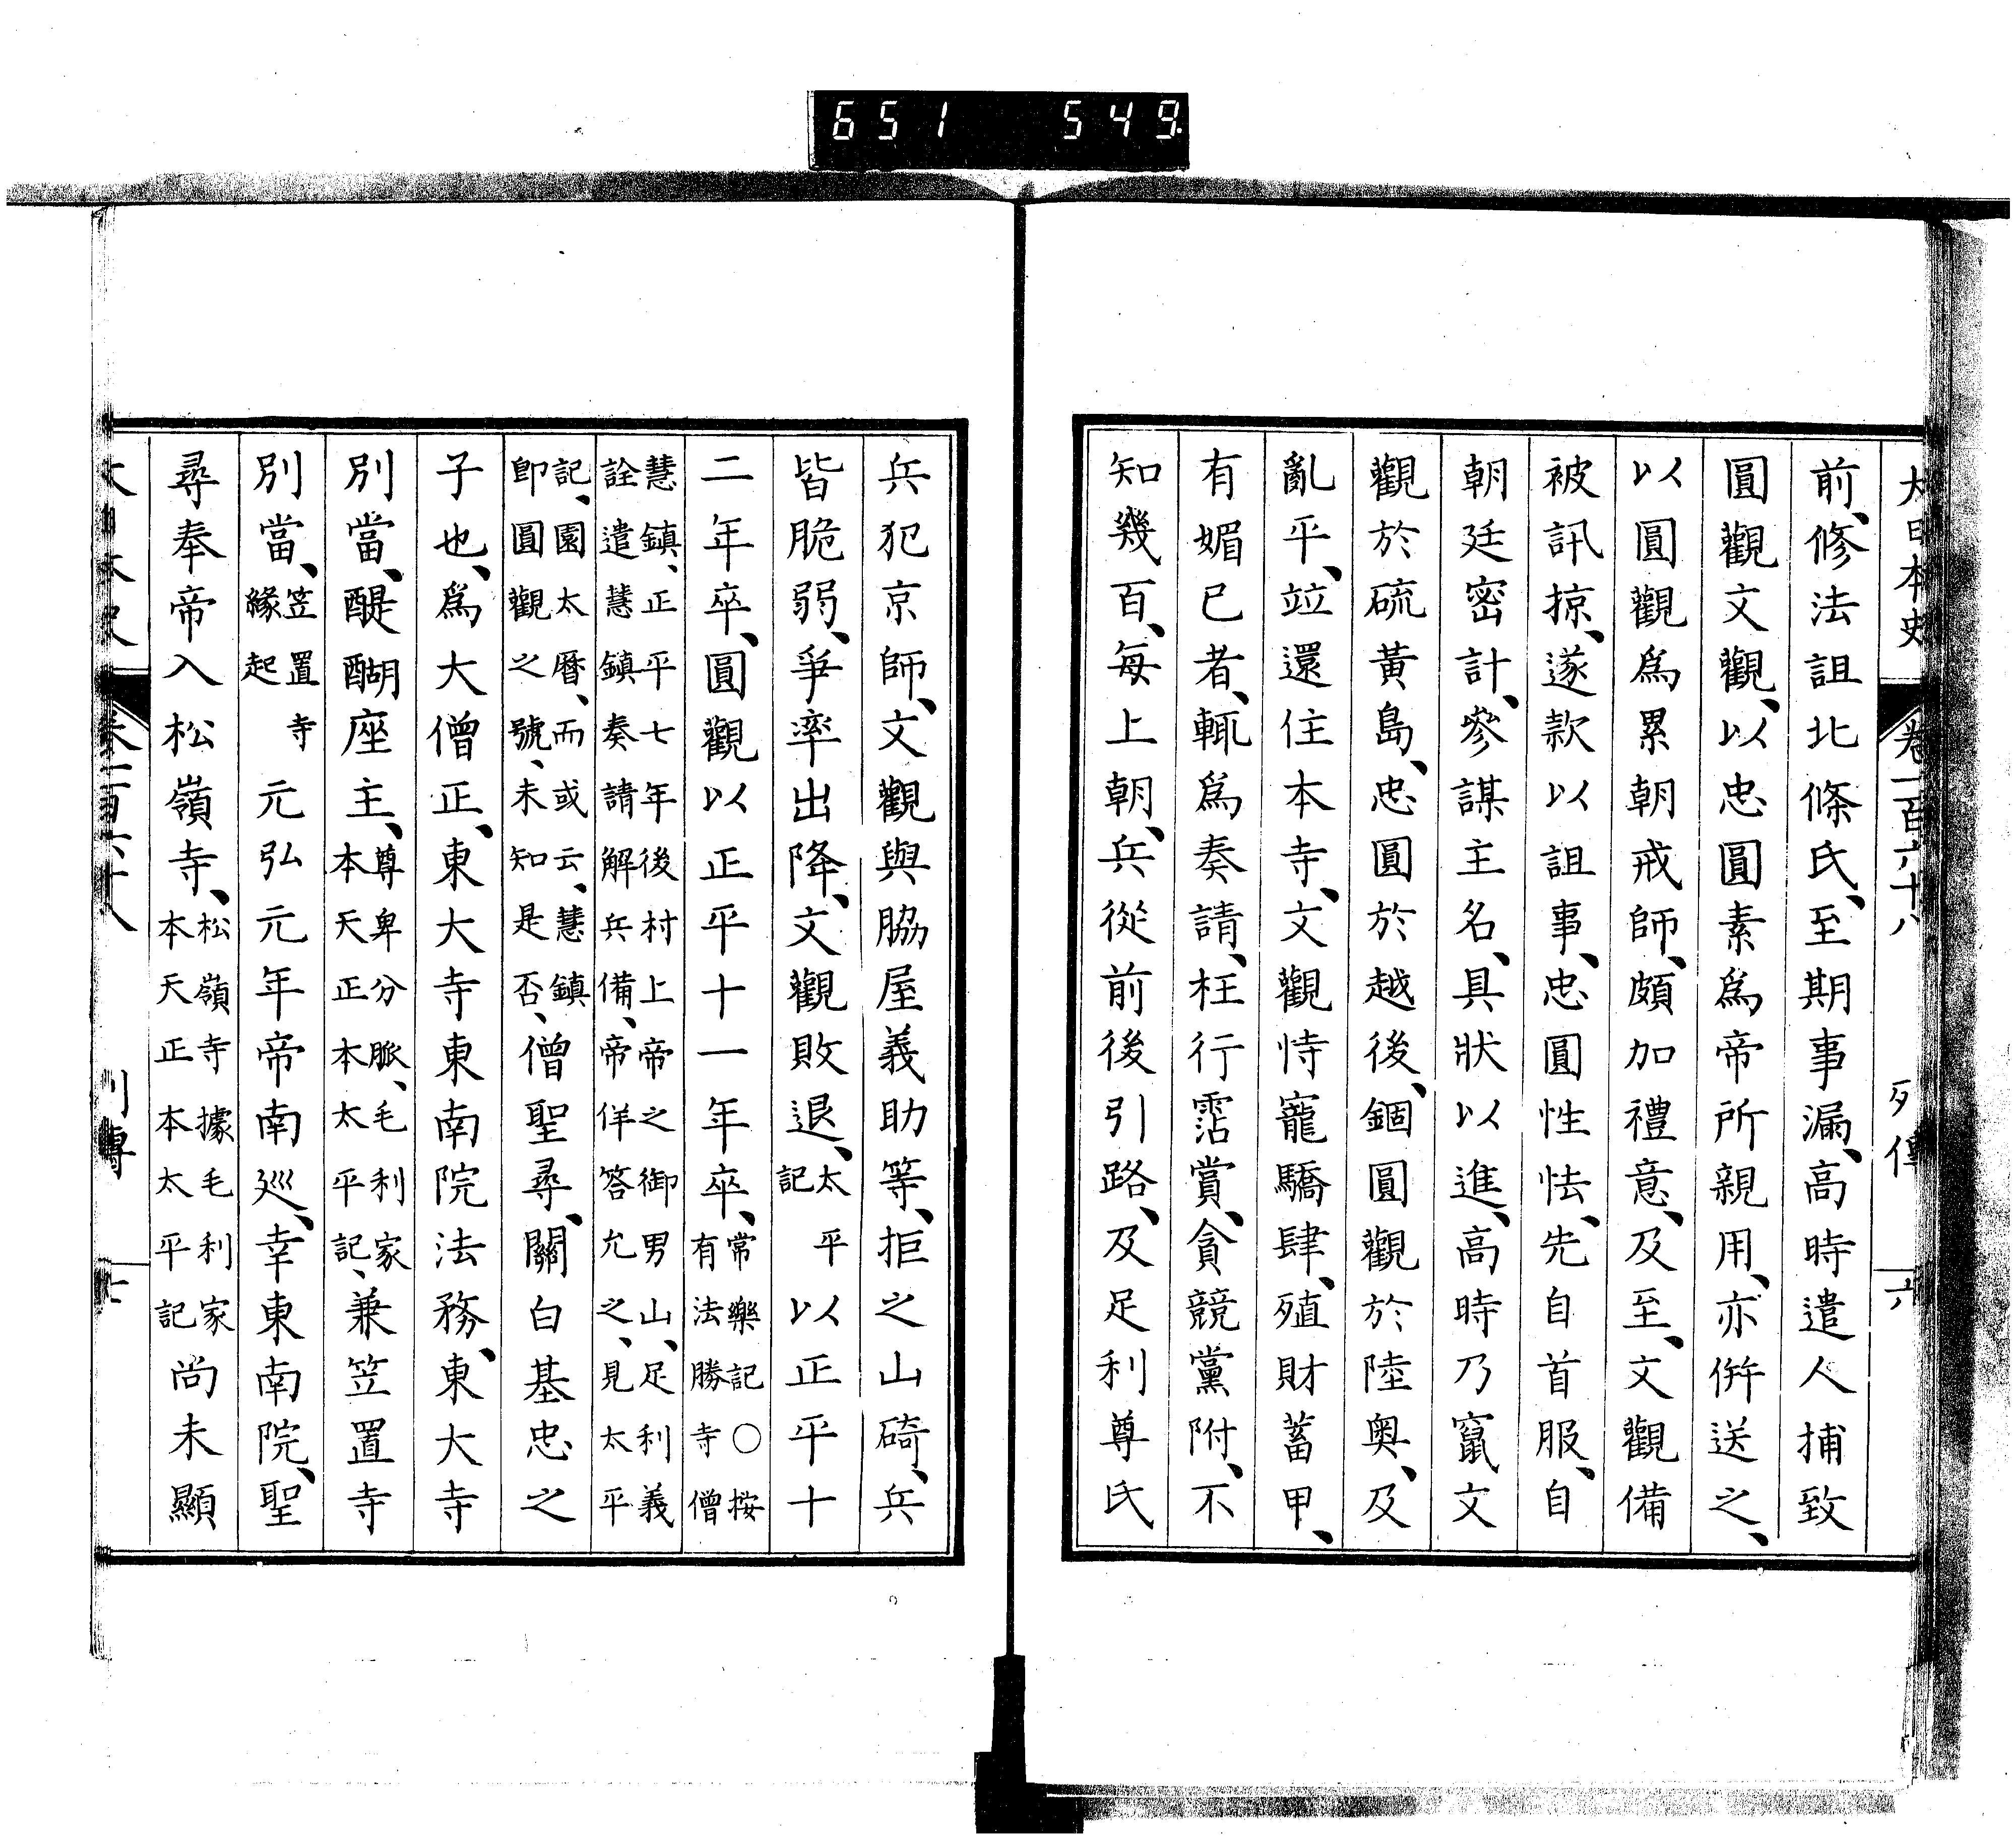 651 549
大日本史 卷一百六十八 列傳 六
前、修法詛北條氏、至期事漏、高時遣人捕致
圓觀文觀、以忠圓素爲帝所親用、亦倂送之、
以圓觀爲累朝戒師、頗加禮意、及至、文觀備
被訊掠、遂款以詛事、忠圓性怯、先自首服、自
朝廷密計、參謀主名、具狀以進、高時乃竄文
觀於硫黃島、忠圓於越後、錮圓觀於陸奥、及
亂平、竝還住本寺、文觀恃寵驕肆、殖財蓄甲、
有媚己者、輒爲奏請、枉行霑賞、貪競黨附、不
知幾百、每上朝、兵從前後引路、及足利尊氏
兵犯京師、文觀與脇屋義助等、拒之山碕、兵
皆脆弱、爭率出降、文觀敗退、太平記以正平十
二年卒、圓觀以正平十一年卒、常樂記○按有法勝寺僧
慧鎮、正平七年後村上帝之御男山、足利義詮遣慧鎮奏請解兵備、帝佯答允之、見太平
記、園太曆、而或云、慧鎮卽圓觀之號、未知是否、僧聖尋、關白基忠之
子也、爲大僧正、東大寺東南院法務、東大寺
別當、醍醐座主、尊卑分脈、毛利家本天正本太平記、兼笠置寺
別當、笠置寺緣起元弘元年帝南巡、幸東南院、聖
尋奉帝入松嶺寺、松嶺寺據毛利家本天正本太平記尚未顯
大日本史 卷一百六十八 列傳 七